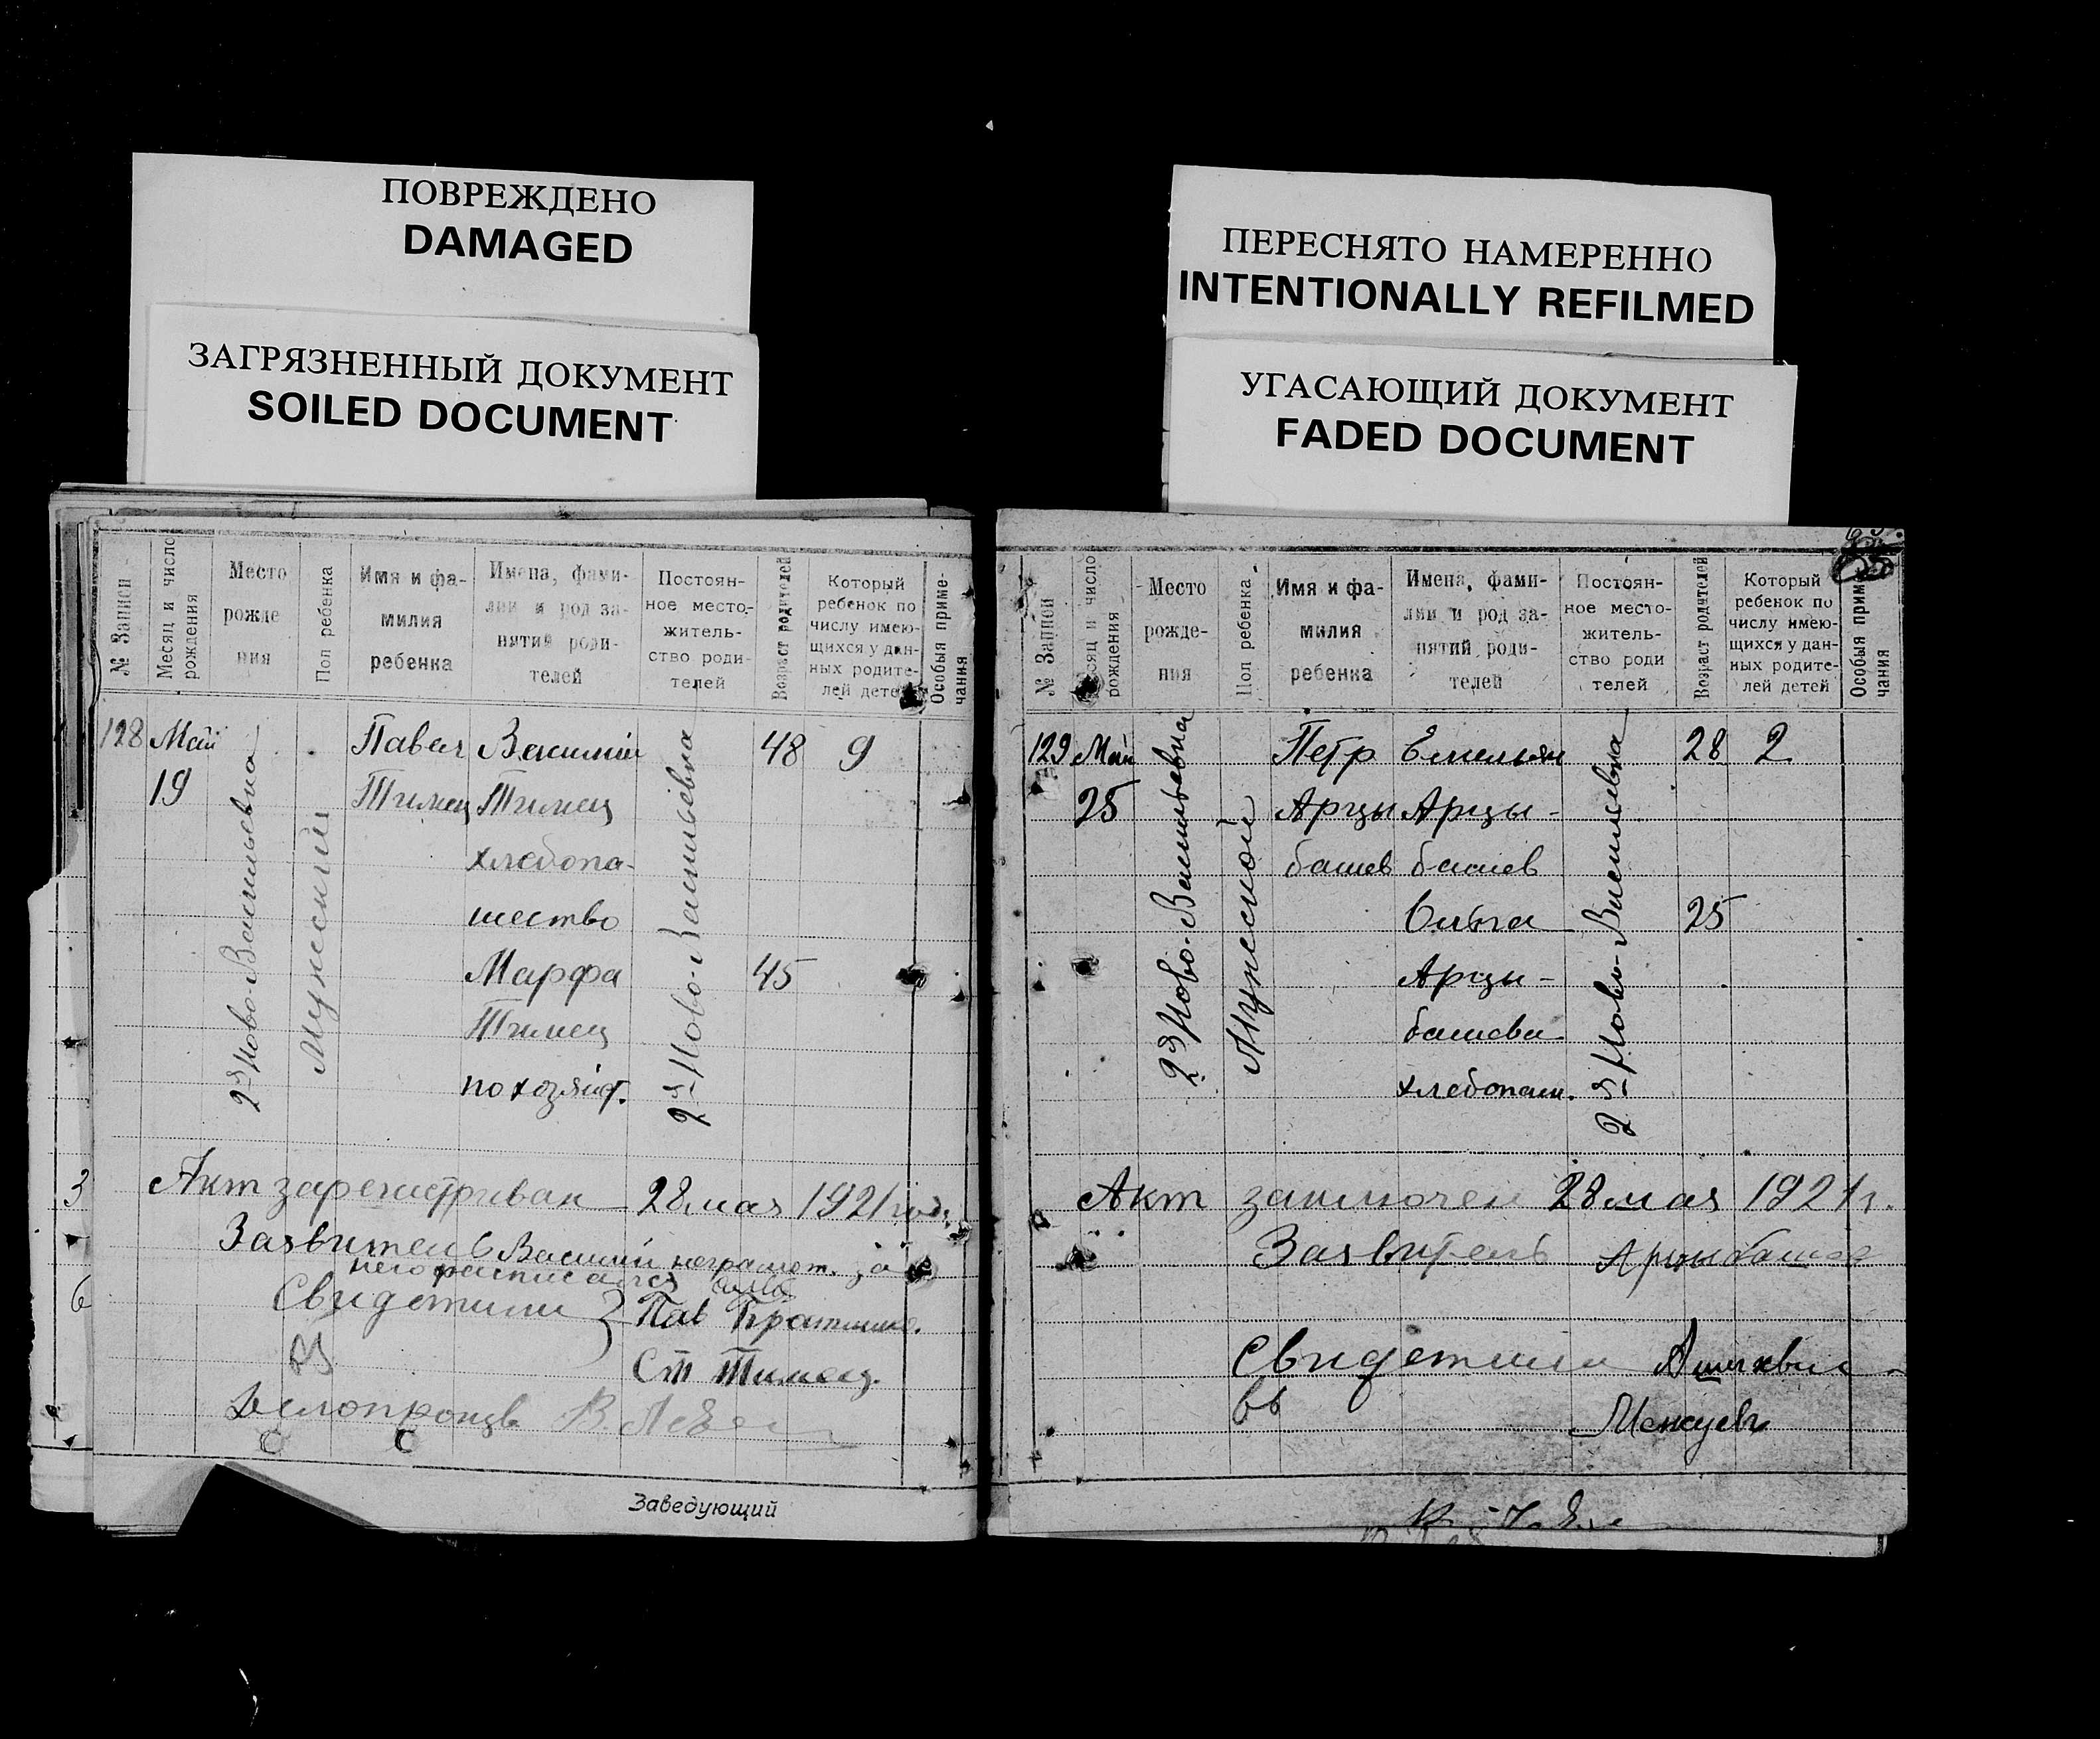 ПОВРЕЖДЕНО
DAMAGED
ЗАГРЯЗНЕННЫЙ ДОКУМЕНТ
SOILED DOCUMENT
ПЕРЕСНЯТО НАМЕРЕННО
INTENTIONALLY REFILMED
УГАСАЮЩИЙ ДОКУМЕНТ
FADED DOCUMENT
№ Записи
Месяц и число рождения
Место рожде ния
Пол ребенка
Имя и фа-
милия
ребенка
Имена, фами-
лии и род за-
нятий роди-
телей
Постоян-
ное место-
житель-
ство роди-
телей
Возраст родителей
Который
ребенок по
числу имею-
щихся у дан-
ных родите-
лей детей
Особыя приме-
чания
128 Май Павел Василий 48 9
19 Тимец Тимец
2я Ново-Васильевка
Мужеский
хлебопа-
шество
Марфа 45
Тимец
по хозяйст.
2я Ново-Васильевка
Акт зарегистриван 28 мая 1921 года
Заявитель Василий неграмот. за
него расписался
Свидетили Пав
Ст Тимец.
Делопроизв
Заведующий
3
6
№ Записи
сяц и число рождения
Место
рожде-
ния
Пол ребенка
Имя и фа-
милия
ребенка
Имена, фами-
лии и род за-
нятий роди-
телей
Постоян-
ное место-
житель-
ство роди
телей
Возраст родителей
Который
ребенок по
числу имею-
щихся у дан-
ных родите-
лей детей
Особыя прим
чания
129 Май Петр Емельян 28 2
25 Арцы Арцы-
башев башев
2я Ново-Васильевка
Мужеской
Ольга 25
Арцы-
башева
хлебопаш.
2я Ново-Васильевка
Акт заключен 28 мая 1921 г.
Заявитель Арцыбашев
Свидетили